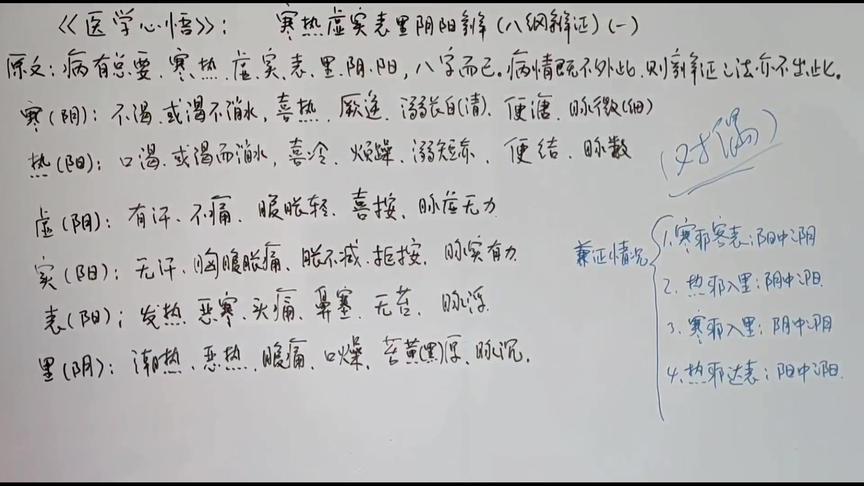 《医学心悟》： 寒热虚实表里阴阳辨（八纲辨证）（一）
原文：病有总要，寒、热、虚、实、表、里、阴、阳，八字而已。病情既不外此，则辨证之法亦不出此。
寒（阴）：不渴、或渴不消水，喜热、厥逆、溺长白（清）、便溏、脉微（细）
热（阳）：口渴、或渴而消水，喜冷、烦躁、溺短赤、便结、脉数
虚（阴）：有汗、不痛、腹胀轻、喜按、脉虚无力
实（阳）：无汗、胸腹胀痛、胀不减、拒按、脉实有力
表（阳）：发热、恶寒、头痛、鼻塞、无苔、脉浮
里（阴）：潮热、恶热、腹痛、口燥、苔黄（黑）厚、脉沉.
（对偶）
兼证情况
1.寒邪客表：阳中阴
2.热邪入里：阴中阳
3.寒邪入里：阴中阴
4.热邪达表：阳中阳